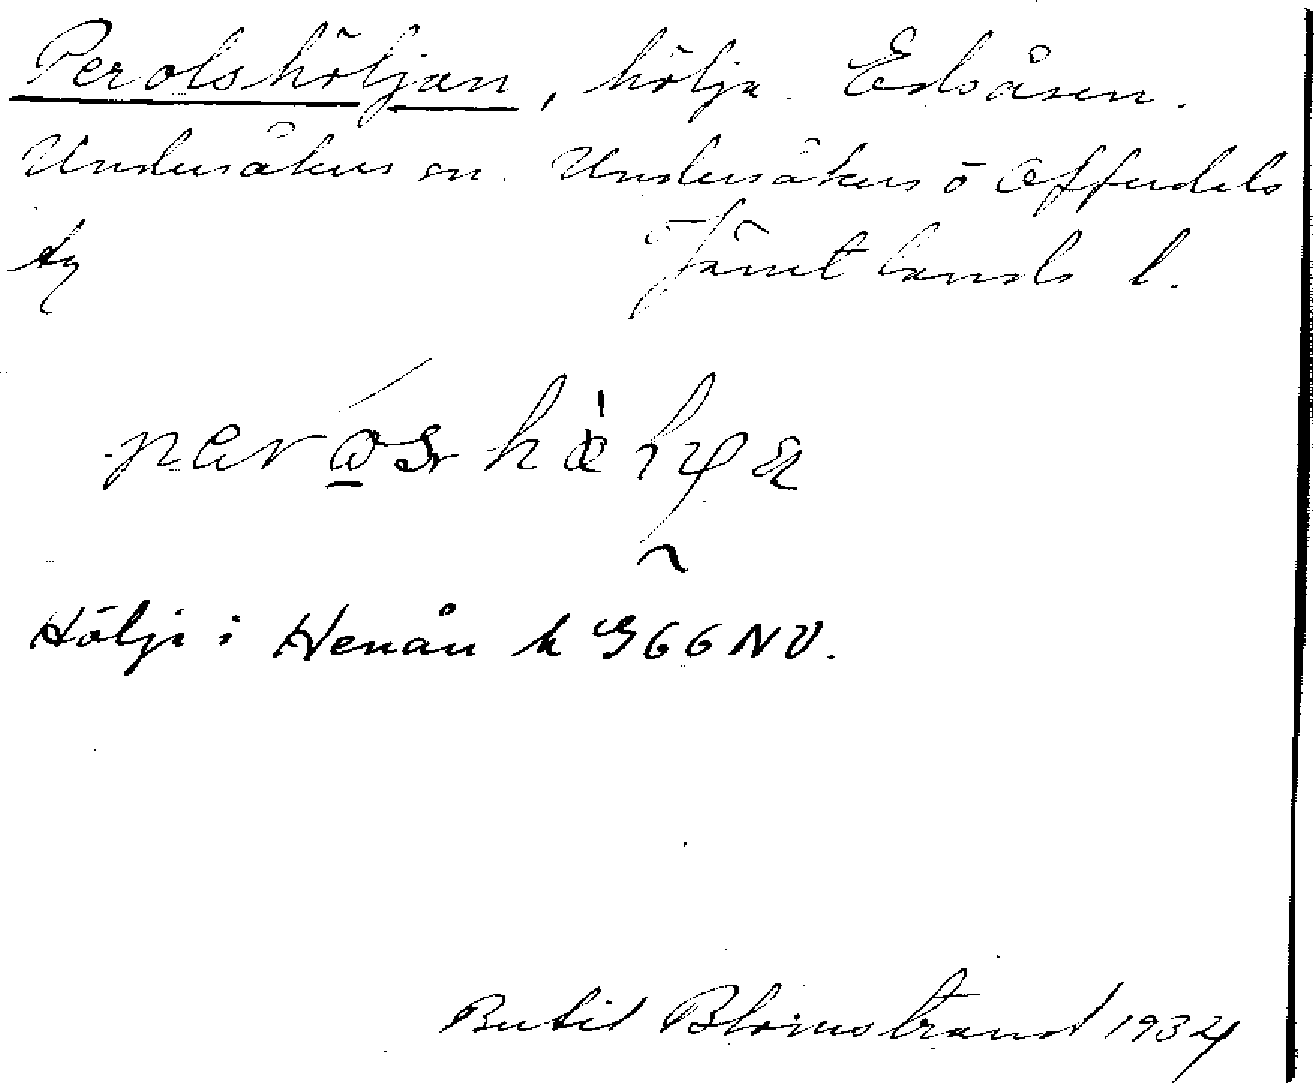 Perolshöljan, hölja. Edsåsen.
Undersåkers sn. Undersåkers o Offerdals
tg Jämtlands l.
Hölja i Henån k G66NV.
Bertil Blomstrand 1934